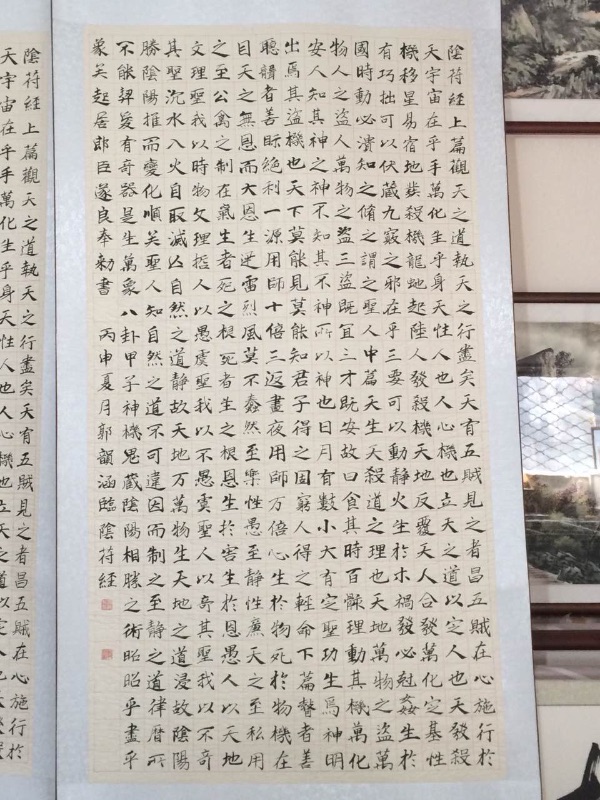 陰符經上篇觀天之道執天之行盡矣天有五賊見之者昌五賊在心施行於
天宇宙在乎手萬化生乎身天性人也人心機也立天之道以定人也天發殺
機移星易宿地發殺機龍蛇起陸人發殺機天地反覆天人合發萬化定基性
有巧拙可以伏藏九竅之邪在乎三要可以動靜火生於木禍發必尅姦生於
國時動必潰知之脩之謂之聖人中篇天生天殺道之理也天地萬物之盜萬
物人之盜人萬物之盜三盜既宜三才既安故曰食其時百骸理動其機萬化
安人知其神之神不知其不神所以神也日月有數小大有定聖功生焉神明
出焉其盜機也天下莫能見莫能知君子得之固窮人得之輕命下篇瞽者善
聽聾者善眎絕利一源用師十倍三返晝夜用師万倍心生於物死於物機在
目天之無恩而大恩生迅雷烈風莫不蠢然至樂性愚至靜性廉天之至私用
之至公禽之制在氣生者死之根死者生之根恩生於害生於恩愚人以天地
文理聖我以時物文理哲人以愚虞聖我以不愚虞聖人以奇其聖我以不奇
其聖沉水入火自取滅亡自然之道靜故天地万物生天地之道浸故陰陽
勝陰陽推而變化順矣聖人知自然之道不可違因而制之至靜之道律曆所
不能契爰有奇器是生萬象八卦甲子神機鬼藏陰陽相勝之術昭昭乎盡乎
象矣起居郎臣遂良奉勑書 丙申夏月郭韻涵臨陰符經
陰符經上篇觀天之道執天之行盡矣天有五賊見之者昌五賊在心施行於
天宇宙在乎手萬化生乎身天性人也人心機也立天之道以定人也天發殺